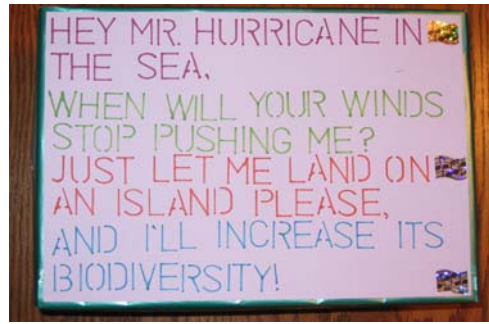 HEY MR. HURRICANE IN
THE SEA.
WHEN WILL YOUR WINDS
STOP PUSHING ME?
JUST LET ME LAND ON
AN ISLAND PLEASE,
AND I'LL INCREASE ITS
BIODIVERSITY!